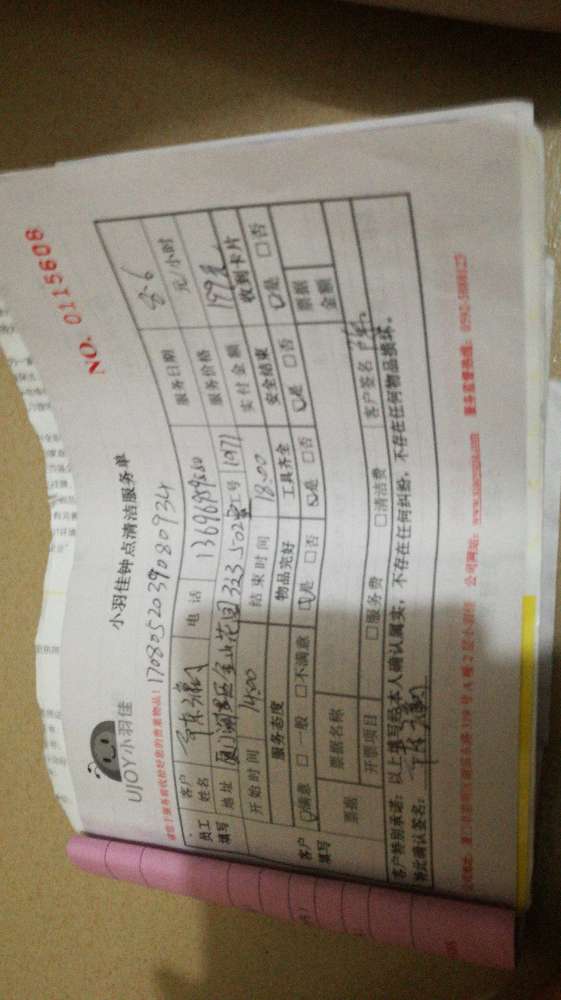 UJOY小羽佳
小羽佳钟点清洁服务单
NO. 0115608
请您！服务前收拾好您的贵重物品！
1708052039080934
员工填写
客户姓名
电话 13696989680
服务日期 8.6
地址 厦门湖里区金山花园323 502室
工号 1071
服务价格 元/小时
开始时间 14:00
结束时间 18:00
实付金额 199元
客户填写
服务态度
物品完好
工具齐全
安全结束
收到卡片
☑满意 □一般 □不满意
☑是 □否
☑是 □否
☑是 □否
☑是 □否
票据
票据名称
票据金额
开票项目 □服务费 □清洁费
客户签名
客户特别承诺：以上填写经本人确认属实，不存在任何纠纷，不存在任何物品损坏。
特此确认签名：
公司网址：
服务监督热线：